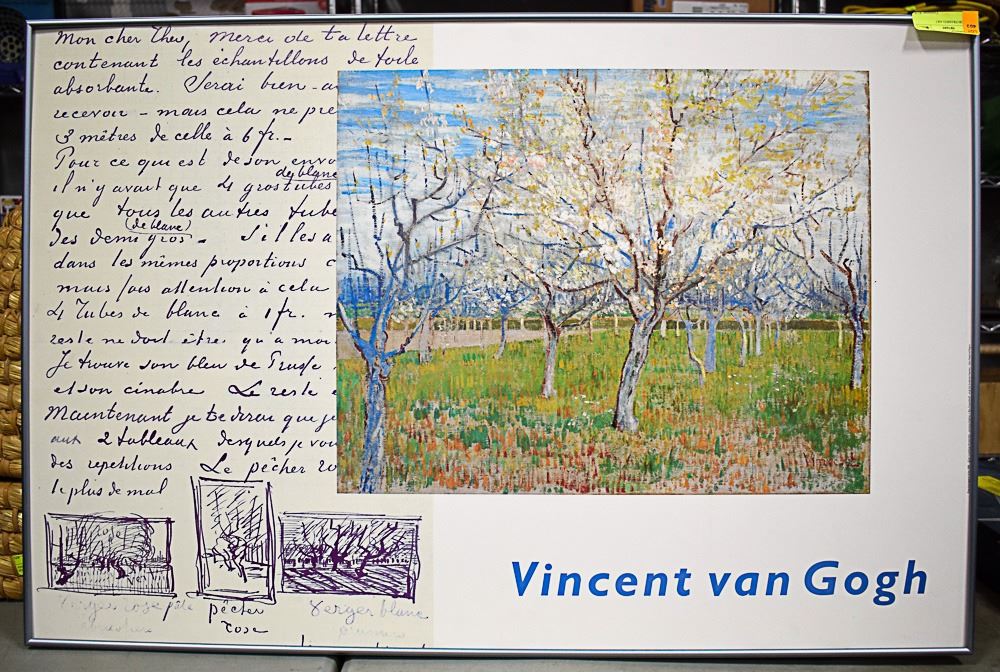 Mon cher Theo, Merci de ta lettre
contenant les échantillons de toile
absorbante. Serai bien-a
recevoir - mais cela ne pre
3 mètres de celle à 6 fr. -
Pour ce qui est de son envo
de blanc
il n'y avait que 4 gros tubes
que tous les autres tube
(de blanc)
des demi gros - S'il les a
dans les mêmes proportions c
mais fais attention à cela
4 Tubes de blanc à 1 fr.
reste ne doit être qu'a moi
Je trouve son bleu de Prusse
et son cinabre Le reste
Maintenant je te dirai que je
aux 2 tableaux desquels je vou
des repetitions Le pêcher ro
le plus de mal
rose
Verger rose pâle
pêcher
rose
Verger blanc
Vincent
Vincent van Gogh